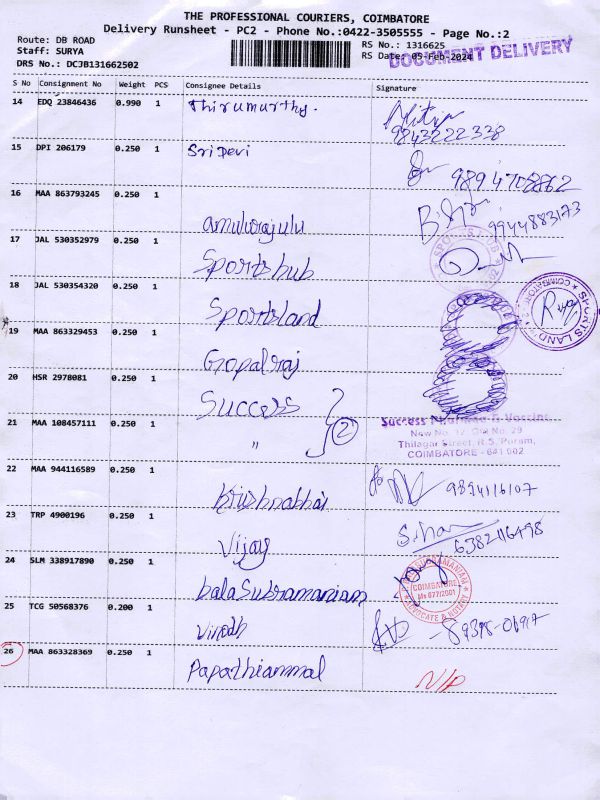 THE PROFESSIONAL COURIERS, COIMBATORE
Delivery Runsheet - PC2 - Phone No.:0422-3505555 - Page No.:2
Route: DB ROAD
RS No.: 1316625
Staff: SURYA
RS Date: 05-Feb-2024
DOCUMENT DELIVERY
DRS No.: DCJB131662502
S No Consignment No Weight PCS Consignee Details Signature
14 EDQ 23846436 0.990 1 Thirumurthy.
9843222338
15 DPI 206179 0.250 1 Sri Devi
9894708862
16 MAA 863793245 0.250 1 amulurajulu
9944883173
17 JAL 530352979 0.250 1 Sportshub
18 JAL 530354320 0.250 1 Sportsland
SPORTS LAND ★ COIMBATORE
19 MAA 863329453 0.250 1 Gopalraj
20 HSR 2978081 0.250 1 Success
21 MAA 108457111 0.250 1 " 2
Success
New No. 12, Old No. 29
Thilagar Street, R.S. Puram,
COIMBATORE - 641 002
22 MAA 944116589 0.250 1 Krishnabhai
9894116107
23 TRP 4900196 0.250 1 Vijay
6382116498
24 SLM 338917890 0.250 1 bala Subramaniam
COIMBATORE
Ms 677/2001
ADVOCATE & NOTARY
25 TCG 50568376 0.200 1 Vinodh
89398-06917
26 MAA 863328369 0.250 1 Papathiammal
N/P